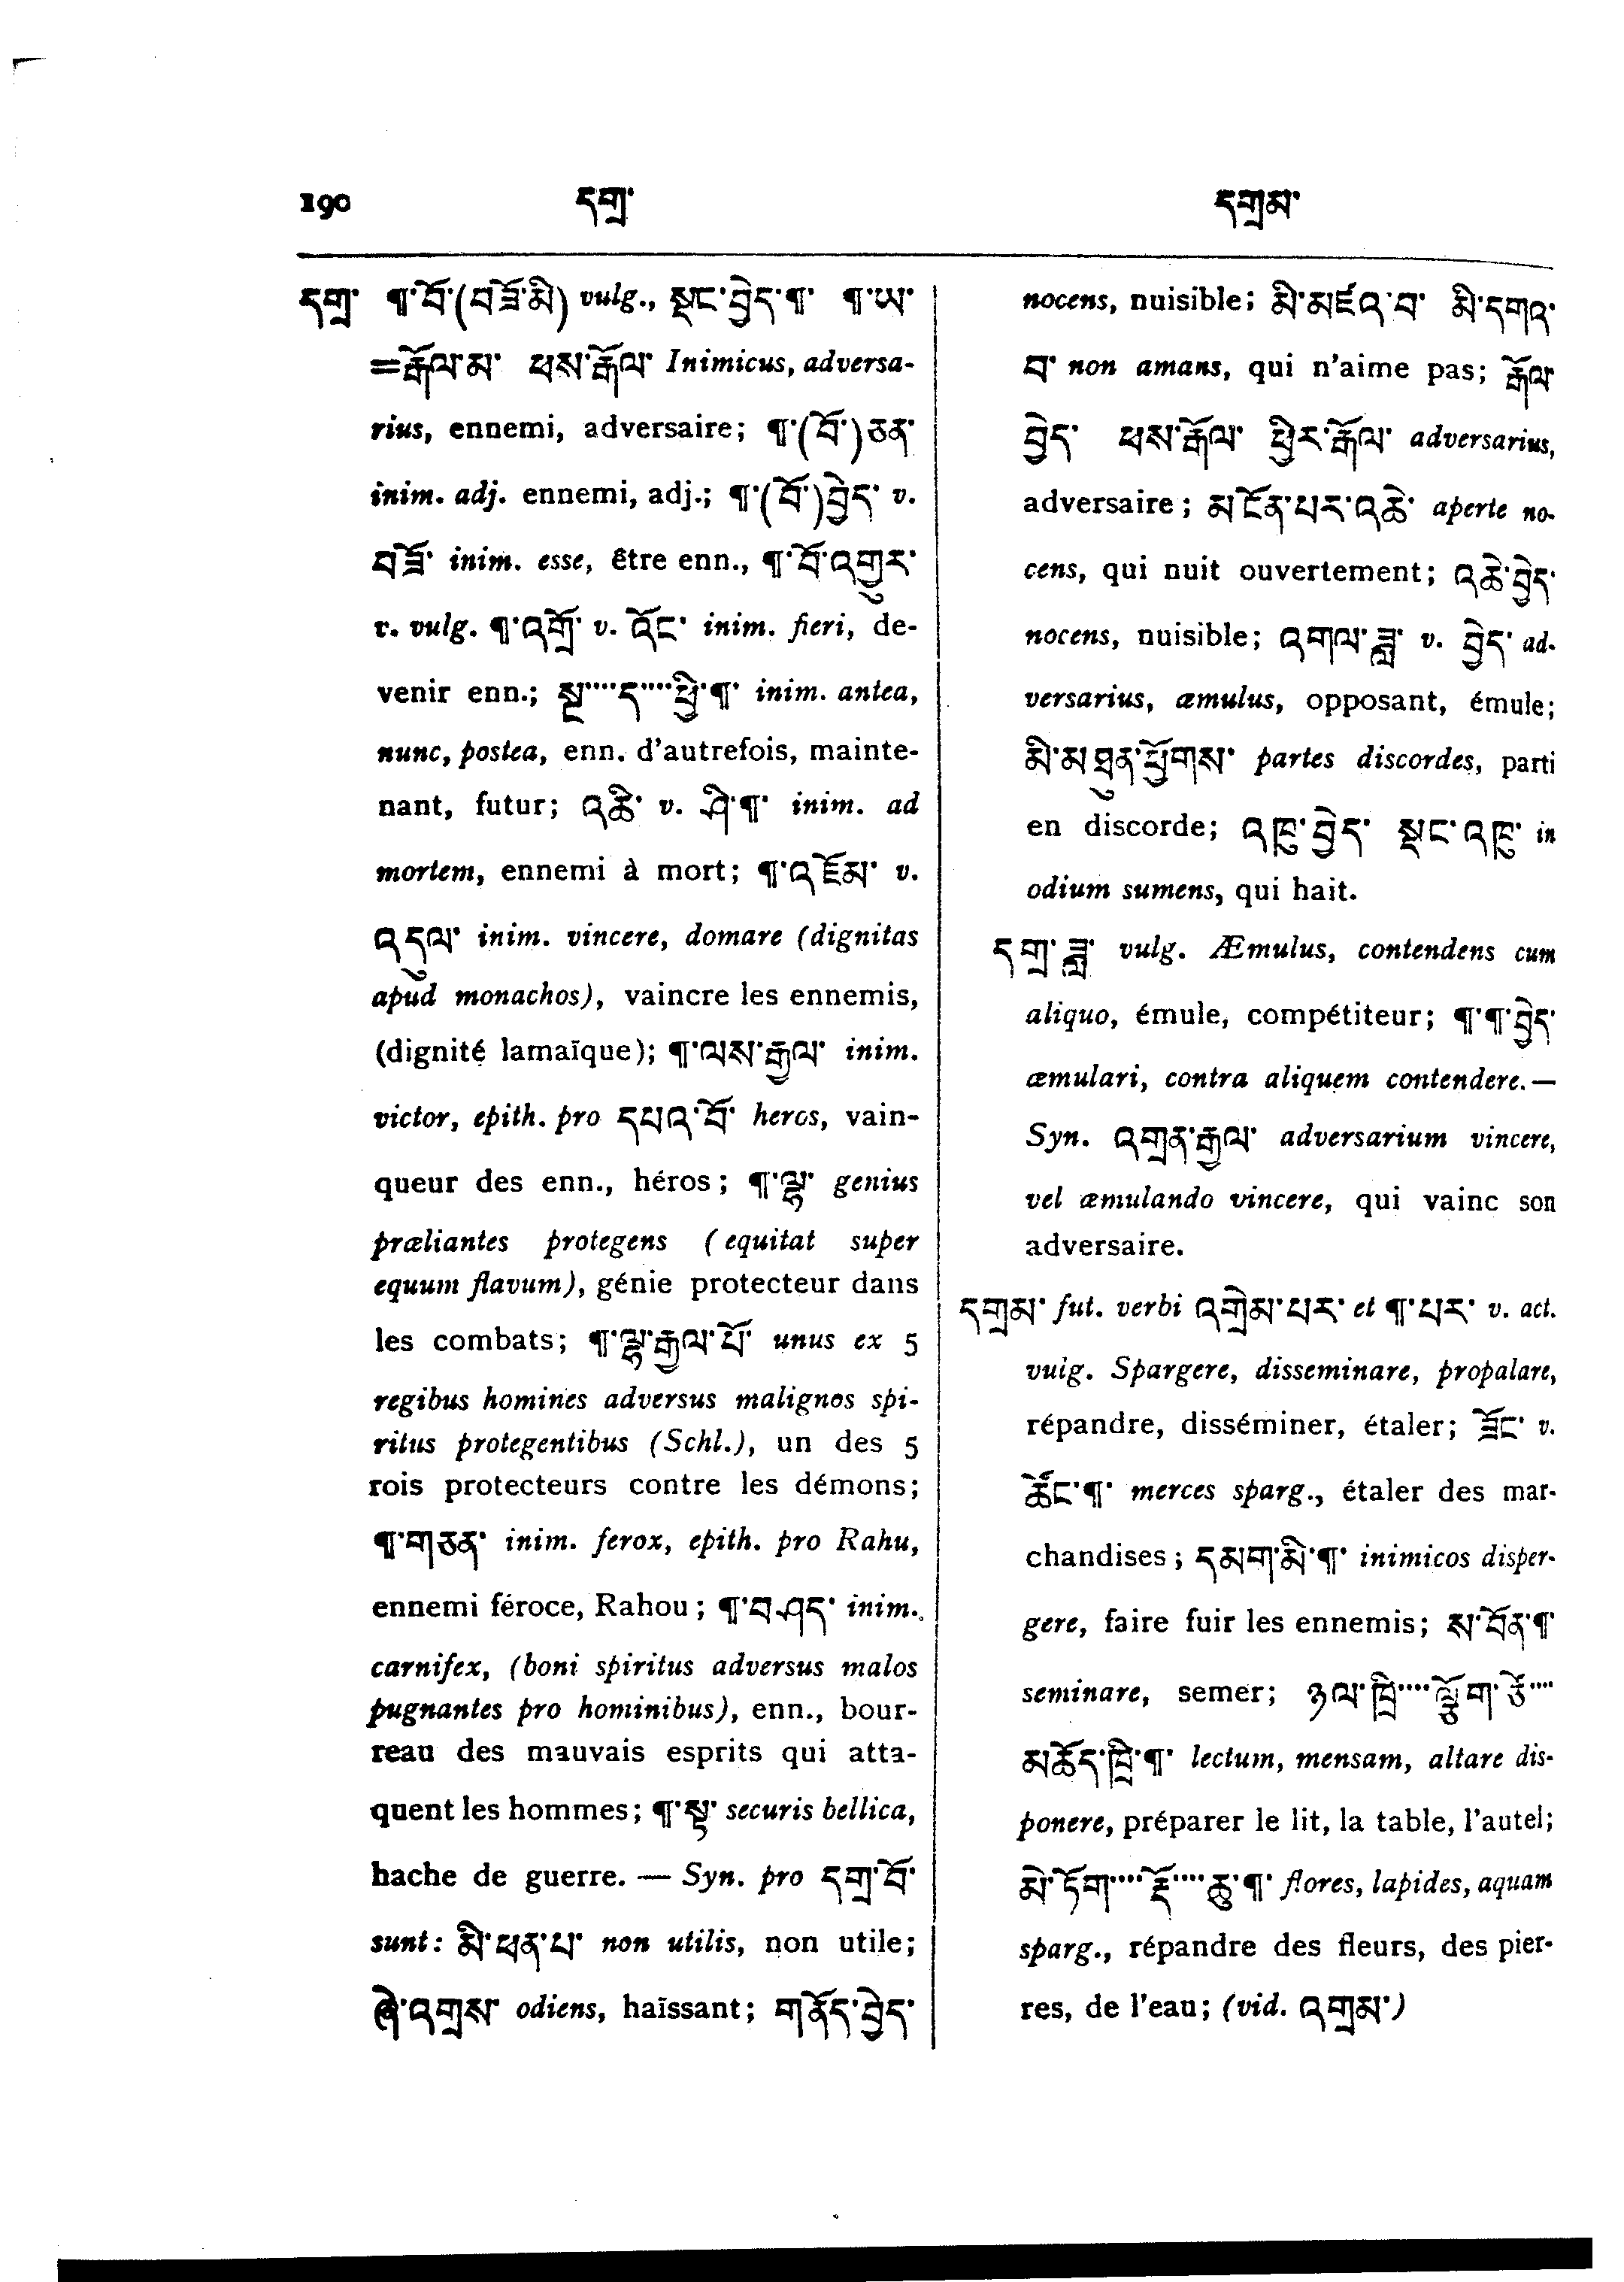 190 དགྲ་ དགྲམ་
དགྲ་ ¶་བོ་(བཟོ་མི) vulg., སྡང་བྱེད་¶་ ¶་ཡ་
=རྒོལ་མ་ ཕས་རྒོལ་ Inimicus, adversa-
rius, ennemi, adversaire; ¶་(བོ་)ཅན་
inim. adj. ennemi, adj.; ¶་(བོ་)བྱེད་ v.
བཟོ་ inim. esse, être enn., ¶་བོ་འགྱུར་
v. vulg. ¶་འགྲོ་ v. འོང་ inim. fieri, de-
venir enn.; སྔ་...ད་...ཕྱི་¶་ inim. antea,
nunc, postea, enn. d'autrefois, mainte-
nant, futur; འཆི་ v. ཤི་¶་ inim. ad
mortem, ennemi à mort; ¶་འཇོམ་ v.
འདུལ་ inim. vincere, domare (dignitas
apud monachos), vaincre les ennemis,
(dignité lamaïque); ¶་ལས་རྒྱལ་ inim.
victor, epith. pro དཔའ་བོ་ heros, vain-
queur des enn., héros; ¶་ལྷ་ genius
præliantes protegens (equitat super
equum flavum), génie protecteur dans
les combats; ¶་ལྷ་རྒྱལ་པོ་ unus ex 5
regibus homines adversus malignos spi-
ritus protegentibus (Schl.), un des 5
rois protecteurs contre les démons;
¶་གཅན་ inim. ferox, epith. pro Rahu,
ennemi féroce, Rahou; ¶་བཤད་ inim.
carnifex, (boni spiritus adversus malos
pugnantes pro hominibus), enn., bour-
reau des mauvais esprits qui atta-
quent les hommes; ¶་སྟ་ securis bellica,
hache de guerre. — Syn. pro དགྲ་བོ་
sunt: མི་ཕན་པ་ non utilis, non utile;
ཞེ་འགྲས་ odiens, haïssant; གནོད་བྱེད་
nocens, nuisible; མི་མཛའ་བ་ མི་དགའ་
བ་ non amans, qui n'aime pas; རྒོལ་
བྱེད་ ཕས་རྒོལ་ ཕྱིར་རྒོལ་ adversarius,
adversaire; མངོན་པར་འཚེ་ aperte no-
cens, qui nuit ouvertement; འཚེ་བྱེད་
nocens, nuisible; འགལ་ཟླ་ v. བྱེད་ ad-
versarius, æmulus, opposant, émule;
མི་མཐུན་ཕྱོགས་ partes discordes, parti
en discorde; འཁུ་བྱེད་ སྡང་འཁུ་ in
odium sumens, qui hait.
དགྲ་ཟླ་ vulg. Æmulus, contendens cum
aliquo, émule, compétiteur; ¶་¶་བྱེད་
æmulari, contra aliquem contendere.—
Syn. འགྲན་རྒྱལ་ adversarium vincere,
vel æmulando vincere, qui vainc son
adversaire.
དགྲམ་ fut. verbi འགྲེམ་པར་ et ¶་པར་ v. act.
vulg. Spargere, disseminare, propalare,
répandre, disséminer, étaler; ཟོང་ v.
ཚོང་¶་ merces sparg., étaler des mar-
chandises; དམག་མི་¶་ inimicos disper-
gere, faire fuir les ennemis; ས་བོན་¶་
seminare, semer; ཉལ་ཁྲི་... ལྕོག་ཙེ་...
མཆོད་ཁྲི་¶་ lectum, mensam, altare dis-
ponere, préparer le lit, la table, l'autel;
མེ་ཏོག་... རྡོ་... ཆུ་¶་ flores, lapides, aquam
sparg., répandre des fleurs, des pier-
res, de l'eau; (vid. འགྲམ་)